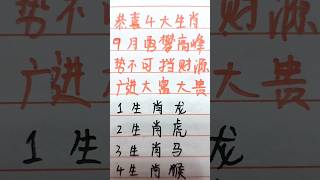 恭喜4大生肖
9月再攀高峰
势不可挡财源
广进大富大贵
1生肖龙
2生肖虎
3生肖马
4生肖猴